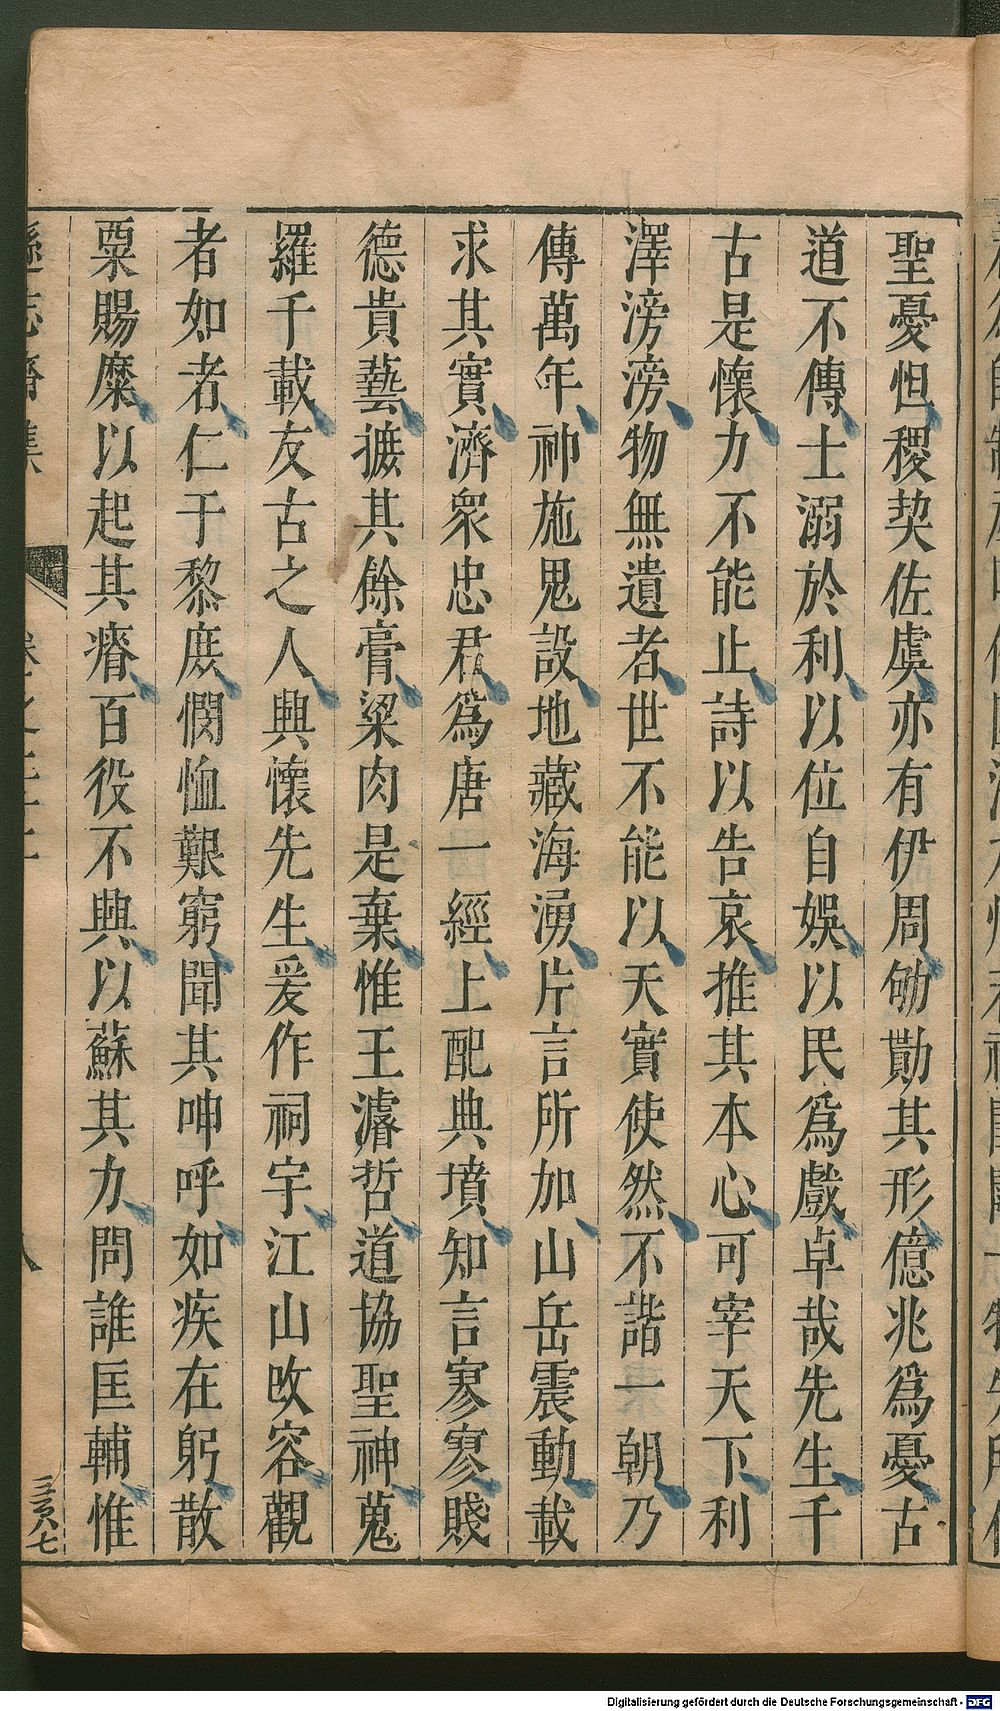 聖憂怛稷契佐虞亦有伊周劬勩其形億兆爲憂古
道不傳士溺於利以位自娛以民爲戲卓哉先生千
古是懷力不能止詩以告哀推其本心可宰天下利
澤滂滂物無遺者世不能以天實使然不諧一朝乃
傳萬年神施鬼設地藏海湧片言所加山岳震動載
求其實濟衆忠君爲唐一經上配典墳知言寥寥賤
德貴藝摭其餘膏粱肉是棄惟王濬哲道協聖神蒐
羅千載友古之人興懷先生爰作祠宇江山改容觀
者如者仁于黎庶憫恤艱窮聞其呻呼如疾在躬散
粟賜糜以起其瘠百役不興以蘇其力問誰匡輔惟
遜志齋集
卷之二十二
八
三百八七
Digitalisierung gefördert durch die Deutsche Forschungsgemeinschaft - DFG